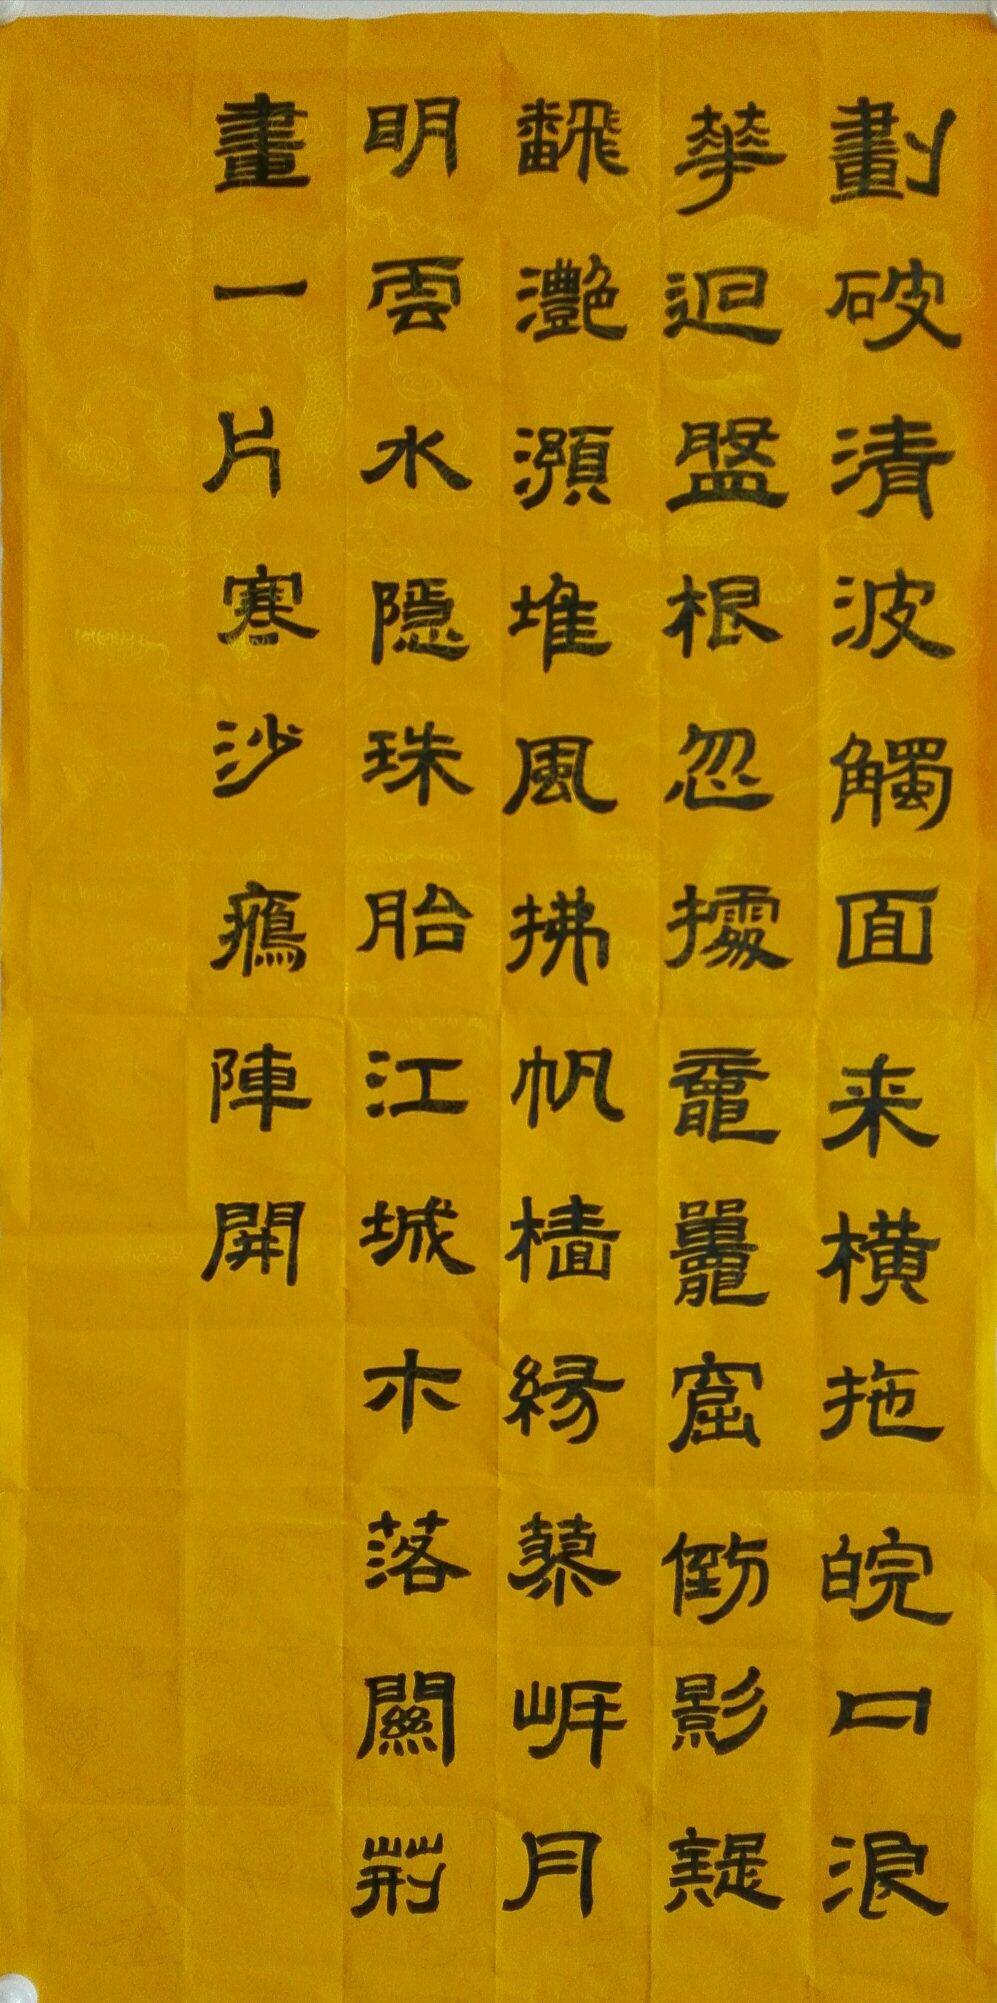 劃破清波觸面来横拖皖口浪
華迴盤根忽據黿鼉窟倒影疑
飜灩澦堆風拂帆檣縁岸月
明雲水隱珠胎江城木落關荊
畫一片寒沙鴈陣開